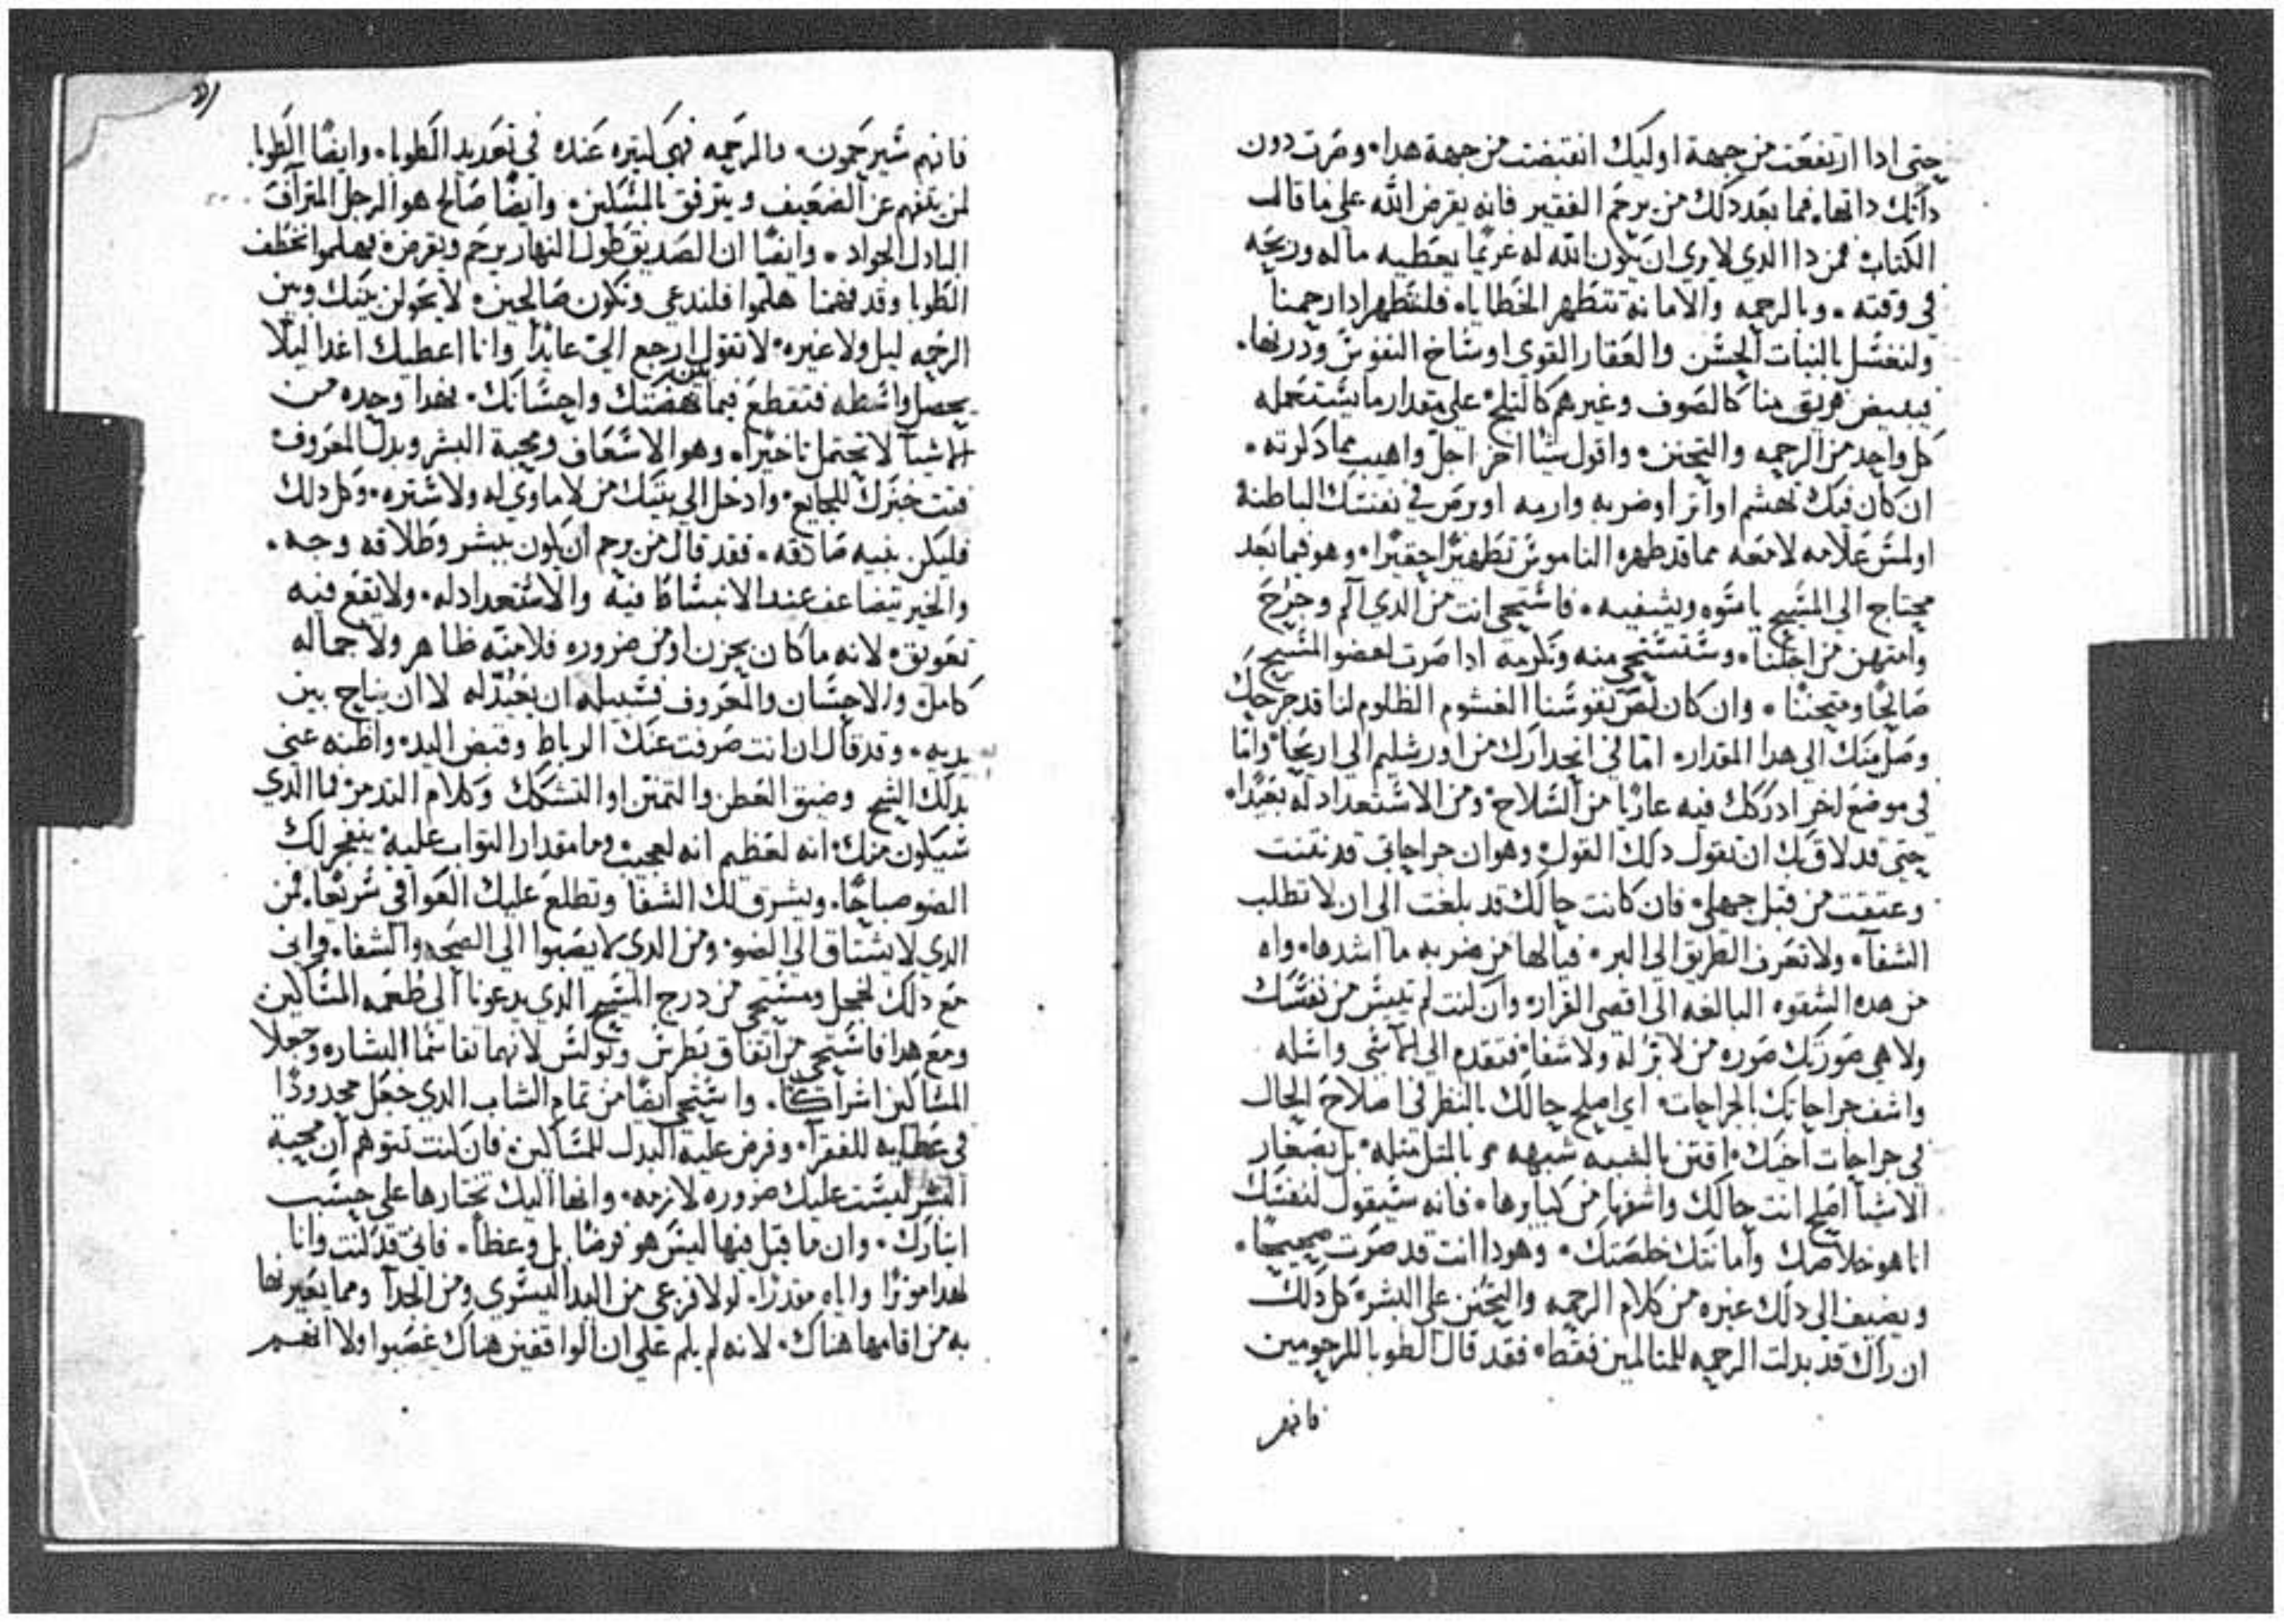 حتى ادا ارتفعت من جهة اوليك انقبضت من جهة هدا • وصرت دون
داتك داتها • فما بعد دلك من يرحم الفقير فانه يقرض الله على ما قال
الكتاب فمن دا الدي لا يري ان يكون الله له غريما يعطيه ماله وربحه
في وقته • وبالرحمه والامانة تتطهر الخطايا • فلنتطهر ادا رحمنا
ولنغتسل بالنبات الحسن والعقار القوي اوساخ النفوس ودرنها •
فيبيض فريق منا كالصوف وغيرهم كالتلج على مقدار ما يستعمله
كل واحد من الرحمه والتحنن • واقول شيا اخر اجل واهيب مما دكرته •
ان كان فيك تهشم او اتر او ضربه وارمه او برص في نفسك الباطنة
او لمس علامه لامعه مما قد طهره الناموس تطهيرا حقيرا • وهو فيما بعد
محتاج الى المسيح ياسوه ويشفيه • فاستحي انت من الدي الم وجرح
وامتهن من اجلنا • وستستحي منه وتكرمه ادا صرت لعضو المسيح
صالحا ومتحننا • وان كان لص نفوسنا الغشوم الظلوم لنا قد جرحك
وصل منك الى هدا المقدار • اما في انحدارك من اورشليم الى اريحا واما
في موضع اخر ادركك فيه عاريا من السلاح ومن الاستعداد له بعيدا •
حتى قد لاق بك ان تقول دلك القول وهو ان جراحاتي قد نتنت
وعتقت من قبل جهلي • فان كانت حالك قد بلغت الى ان لا تطلب
الشفا • ولا تعرف الطريق الى البر • فيالها من ضربه ما اشدها • واه
من هده الشقوه البالغه الى اقصى القرار • وان كنت لم تييس من نفسك
ولا هي صورتك صوره من لا بر له ولا شفا • فتقدم الى الاسي واسله
واشف جراحاتك بالجراحات • اي اصلح حالك بالنظر في اصلاح الحال
في جراحات اخيك • اقتن بالشبيه شبهه وبالمتل متله • بل بصغار
الاشيا اصلح انت حالك واشفها من كبارها • فانه سيقول لنفسك
انا هو خلاصك وامانتك خلصتك • وهودا انت قد صرت صحيحا •
ويضيف الى دلك غيره من كلام الرحمه والتحنن على البشر • كل دلك
ان راك قد بدلت الرحمه للمتالمين فقط • فقد قال الطوبا للرحومين
فانهم
فانهم سيرحمون • والرحمه فهي كتيره عنده في تعديد الطوبا • وايضا الطوبا
لمن يتفهم عن الضعيف ويترفق بالمسكين • وايضا صالح هو الرجل المتراف
البادل الجواد • وايضا ان الصديق طول النهار يرحم ويقرض • فهلموا نخطف
الطوبا وقد فهمنا هلموا فلندعى ونكون صالحين • لا يحولن بينك وبين
الرحمه ليل ولا غيره • لا تقول ارجع الي عايدا وانا اعطيك اغدا ليلا
يحصل واسطه فتقطع فيما بين نهضتك واحسانك • فهدا وحده من
الاشيا لا تحتمل تاخيرا • وهو الاسعاف ومحبة البشر وبدل المعروف
فتت خبزك للجايع • وادخل الى بيتك من لا ماوي له ولا ستره • وكل دلك
فليكن بنيه صادقه • فقد قال من يرحم ان يكون ببشر وطلاقه وجه •
والخير يتضاعف عند الانبساط فيه والاستعداد له • ولا تقع فيه
تعويق • لانه ما كان بحزن او من ضروره فلامنه ظاهر ولا جماله
كامل والاحسان والمعروف فسبيله ان يعيد له لا ان يناح بين
يديه • وقد قال ان انت صرفت عنك الرباط وقبض اليد • واظنه عنى
بدلك الشح وضيق العطن والتمنن او التشكك وكلام التدمر • فما الدي
سيكون منك • انه لعظيم انه لعجيب وما مقدار التواب عليه • ينفجر لك
الضو صباحا • ويشرق لك الشفا وتطلع عليك العوافي سريعا • فمن
الدي لا يشتاق الى الضو • ومن الدي لا يصبوا الى الصحه والشفا • واني
مع دلك لخجل ومستحي من درج المسيح الدي يدعونا الى طعمه المساكين
ومع هدا فاستحي من اتفاق بطرس وبولس لانهما تقاسما البشاره وجعلا
المساكين اشراكا • واستحي ايضا من تمام الشاب الدي جعل محدودا
في عطايه للفقرا • وفرض عليه البدل للمساكين • فان كنت تتوهم ان محبة
البشر ليست عليك ضروره لازمه • وانها اليك تختارها على حسب
ايتارك • وان ما قيل فيها ليس هو فرضا بل وعظا • فاني قد كنت وانا
لهدا موترا واياه مقدرا • لولا فزعي من اليد اليسري ومن الجدا ومما يعيرنها
به من اقامها هناك • لانه لم يلم على ان الواقفين هناك غصبوا ولا انهم